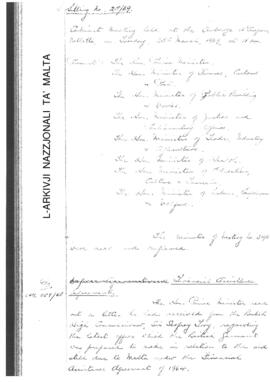 Sitting No. 25/69.
Cabinet Meeting held at the Auberge d'Aragon,
Valletta on Tuesday 25th March 1969, at 11 a.m.
Present: The Hon. Prime Minister.
The Hon. Minister of Finance, Customs
& Port.
The Hon. Minister of Public Building
& Works.
The Hon. Minister of Justice and
Parliamentary Affairs.
The Hon. Minister of Trade, Industry
& Agriculture.
The Hon. Minister of Health.
The Hon. Minister of Education,
Culture & Tourism.
The Hon. Minister of Labour, Employment
& Welfare.
The minutes of
were read and confirmed.
Financial Assistance
Agreement.
The Hon. Prime Minister read
out a letter he had received from the British
High Commissioner, Sir Geofroy Tory, regarding
the latest offer which the British Government
was prepared to make in relation to the aid
still due to Malta under the Financial
Assistance Agreement of 1964.
L-ARKIVJI NAZZJONALI TA' MALTA